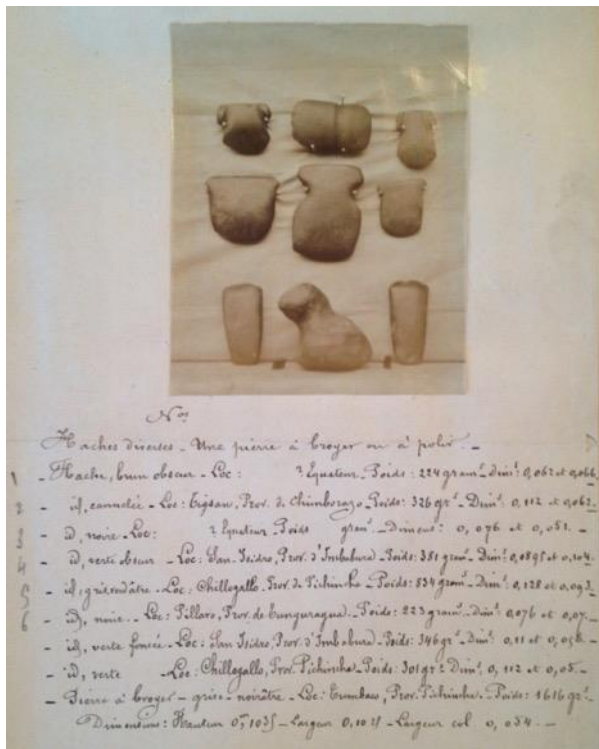 Nos
Haches diverses - Une pierre à broyer ou à polir. -
1 - Hache, brun obscur - Loc: ? Equateur - Poids: 224 gram.s - Dim.s: 0,062 et 0,066
2 - id, cannelée - Loc: Tigsan, Prov. de Chimborazo - Poids: 326 gr.s - Dim.s: 0,112 et 0,062
3 - id, noire - Loc: ? Equateur - Poids gram.s - Dimens: 0,076 et 0,051. -
4 - id, verte obscur - Loc: San Isidro, Prov. d'Imbabura - Poids: 381 gram.s - Dim.s: 0,0895 et 0,104. -
5 - id, - Loc: Chillogallo, Prov. de Pichincha - Poids: 534 gram.s - Dim.s: 0,128 et 0,093.
6 - id, noire - Loc: Pillaro, Prov. de Tunguragua - Poids: 223 gram.s - Dim.s: 0,076 et 0,07. -
- id, verte foncée - Loc: San Isidro, Prov. d'Imbabura - Poids: 346 gr.s - Dim.s: 0,11 et
- id, verte - Loc: Chillogallo, Prov. Pichincha - Poids: 301 gr.s - Dim.s: 0,112 et 0,05. -
- Pierre à broyer - grise-noirâtre - Loc: Tumbaco, Prov. Pichincha - Poids: 1616 gr.s -
Dimensions: Hauteur - Largeur - Largeur col 0,054. -